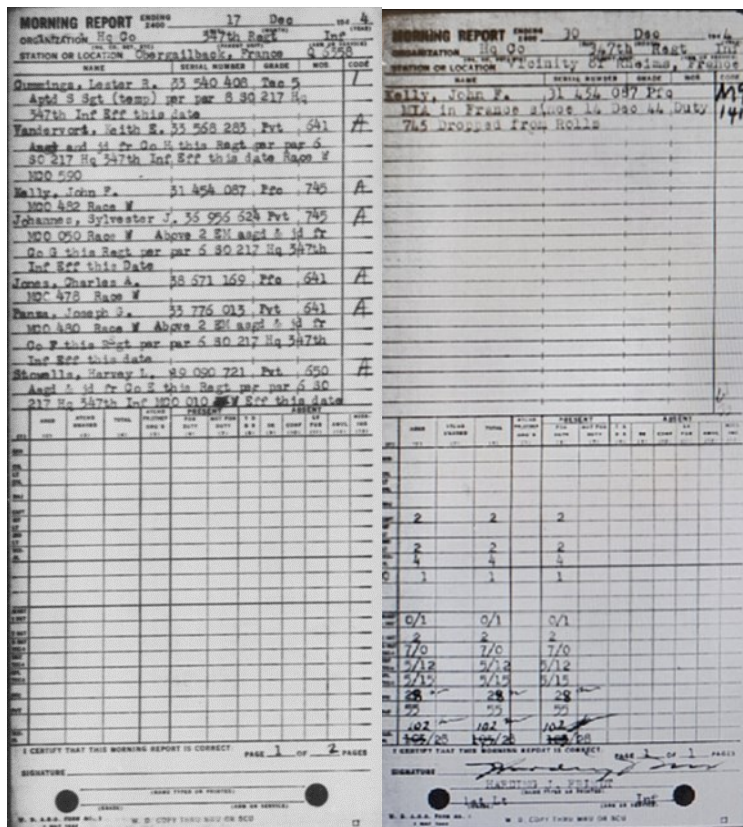 MORNING REPORT ENDING 2400 17 Dec 194 4
ORGANIZATION Hq Co 347th Regt Inf
STATION OR LOCATION Obergailback, France Q 5358
NAME SERIAL NUMBER GRADE MOS CODE
Cummings, Lester R. 33 540 408 Tec 5 1
Aptd S Sgt (temp) per par 8 SO 217 Hq
347th Inf Eff this date
Vandervord, Keith E. 33 568 283 Pvt 641 A
Asgd and jd fr Co H this Regt per par 6
SO 217 Hq 347th Inf Eff this date Race W
MOO 590
Kelly, John F. 31 454 087 Pfc 745 A
MOO 482 Race W
Johannes, Sylvester J. 36 956 624 Pvt 745 A
MOO 050 Race W Above 2 EM asgd & jd fr
Co G this Regt per par 6 SO 217 Hq 347th
Inf Eff this Date
Jones, Charles A. 38 671 169 Pfc 641 A
MOC 478 Race W
Panza, Joseph G. 33 776 013 Pvt 641 A
MOO 480 Race W Above 2 EM asgd & jd fr
Co F this Regt per par 6 SO 217 Hq 347th
Inf Eff this date
Stowells, Harvey L. 39 090 721 Pvt 650 A
Asgd & jd fr Co E this Regt per par 6 SO
217 Hq 347th Inf MOO 010 W Eff this date
PRESENT ABSENT
ASGD TOTAL FOR DUTY NOT FOR DUTY SK CONF AWOL
I CERTIFY THAT THIS MORNING REPORT IS CORRECT. PAGE 1 OF 2 PAGES
SIGNATURE
(NAME TYPED OR PRINTED)
(GRADE) (ARM OR SERVICE)
W. D. A.G.O. FORM NO. 1 W. D. COPY THRU MRU OR SCU
MORNING REPORT ENDING 2400 30 Dec 194 4
ORGANIZATION Hq Co 347th Regt Inf
STATION OR LOCATION Vicinity of Rheims, France
NAME SERIAL NUMBER GRADE MOS CODE
Kelly, John F. 31 454 087 Pfc
MIA in France since 14 Dec 44 Duty 141
745 Dropped from Rolls
PRESENT ABSENT
ASGD TOTAL FOR DUTY NOT FOR DUTY SK CONF AWOL
2 2 2
2 2 2
4 4 4
1 1 1
0/1 0/1 0/1
2 2 2
7/0 7/0 7/0
5/12 5/12 5/12
5/15 5/15 5/15
28 28 28
55 55 55
102 102 102
103/28 103/28 103/28
I CERTIFY THAT THIS MORNING REPORT IS CORRECT. PAGE 1 OF 1 PAGES
SIGNATURE
HARDING J.
(NAME TYPED OR PRINTED)
1st Lt Inf
(GRADE) (ARM OR SERVICE)
W. D. A.G.O. FORM NO. 1 W. D. COPY THRU MRU OR SCU